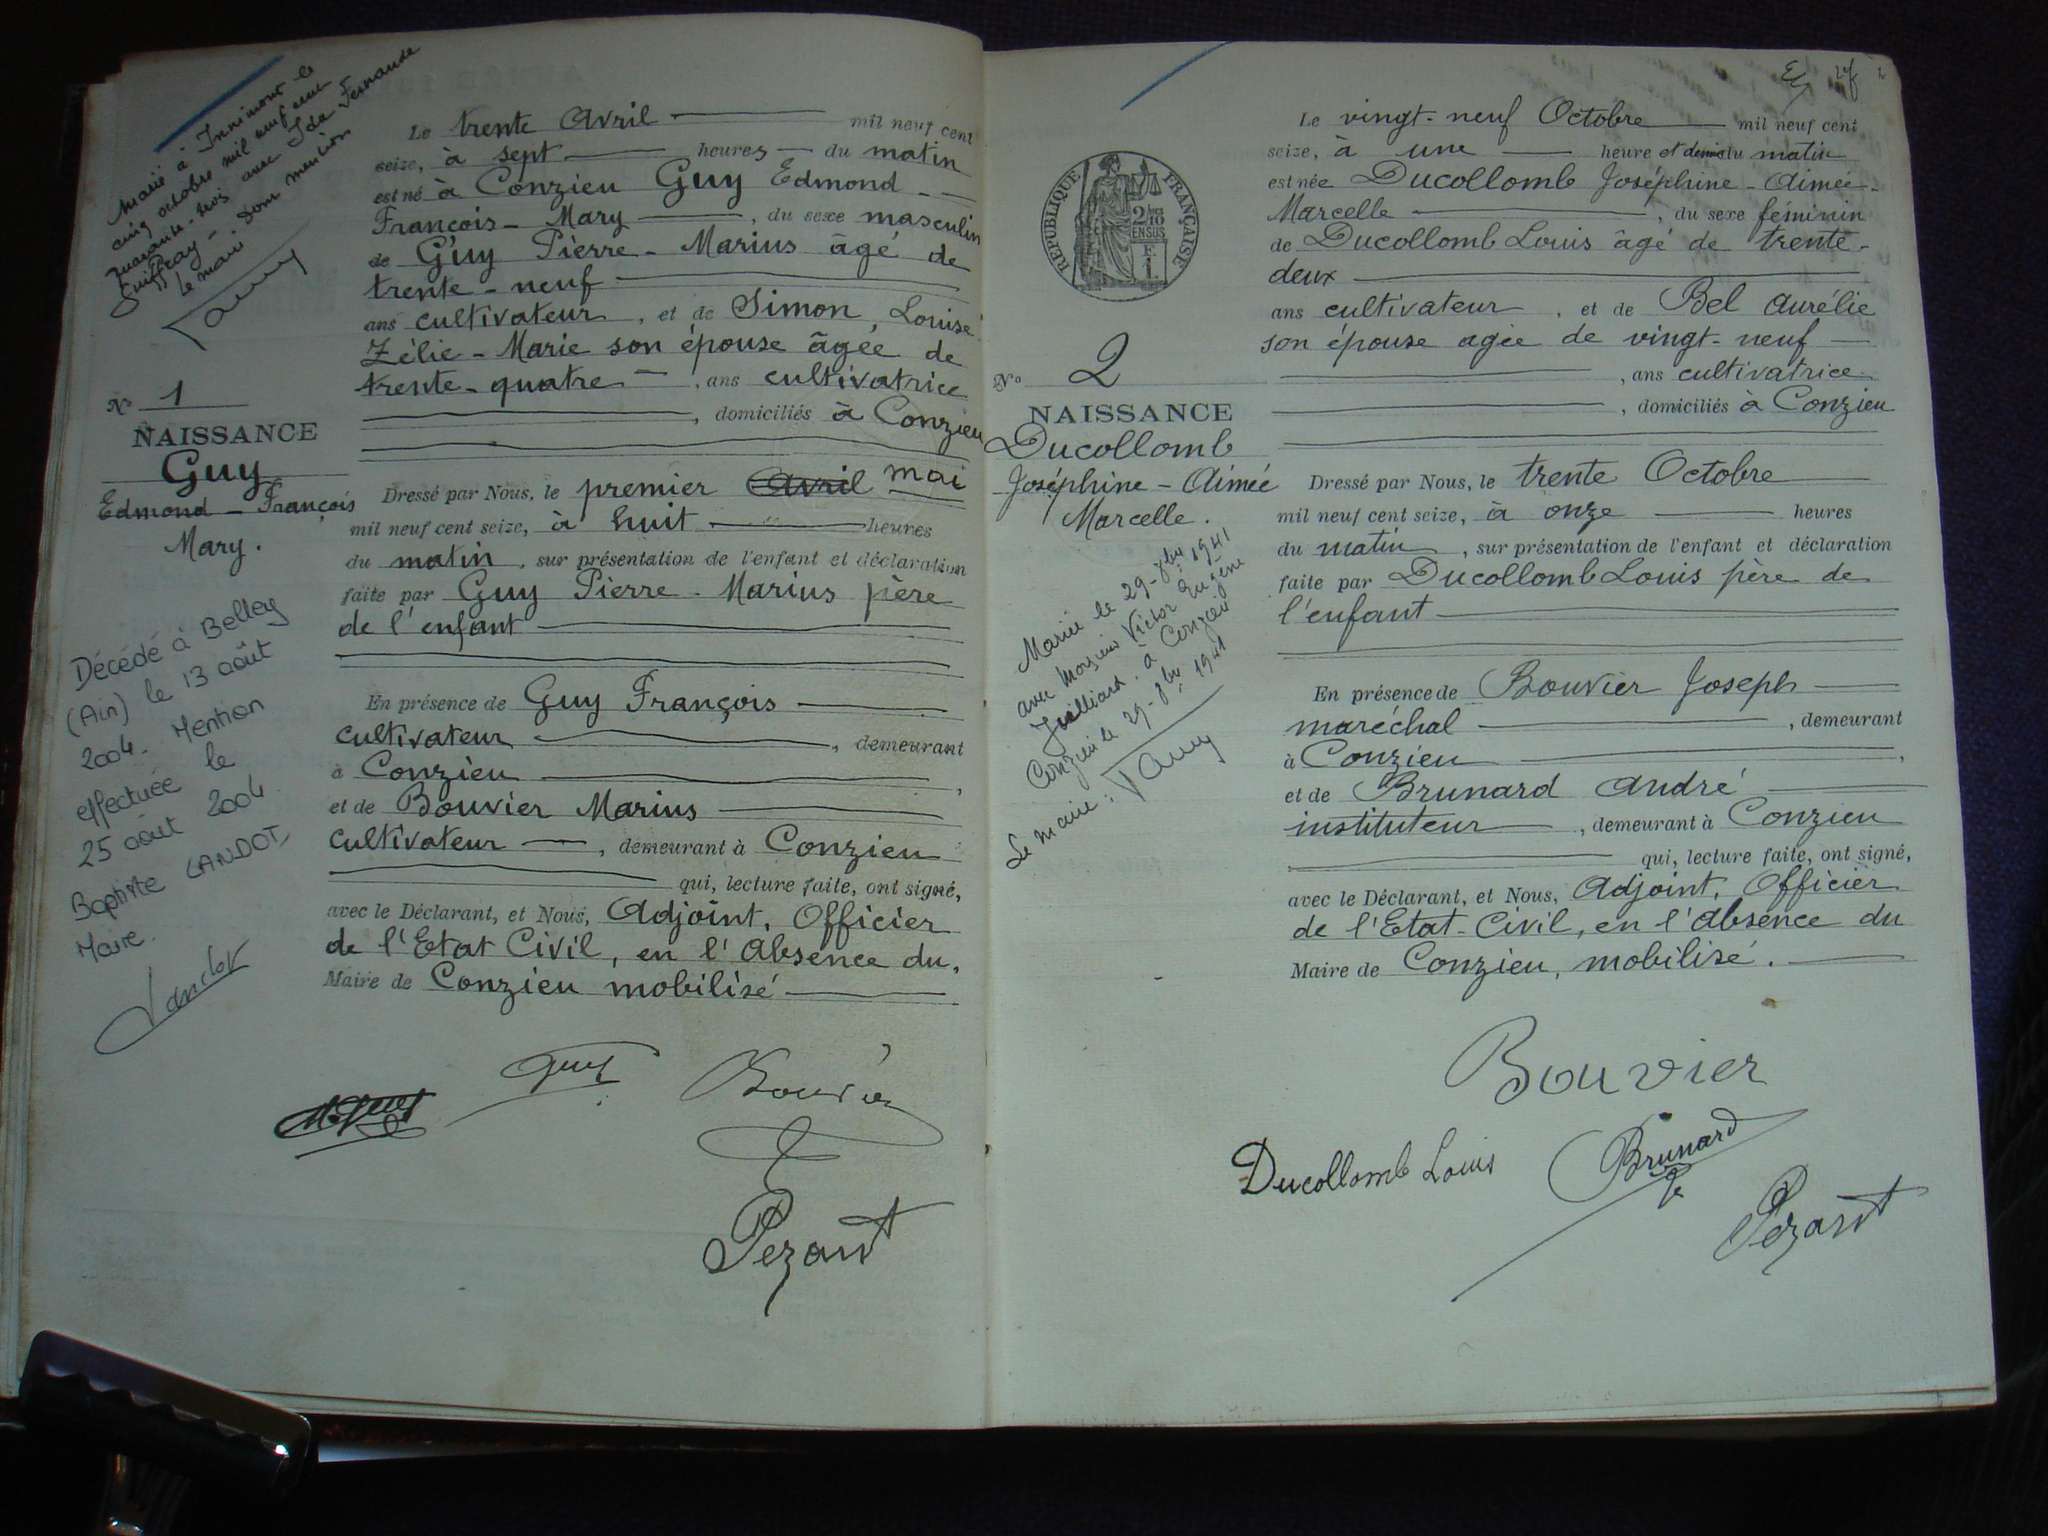 Marié à Innimont le
cinq octobre mil neuf cent
quarante-trois avec Ida Fernande
Guiffray - Dont mention
Le maire
N° 1
NAISSANCE
Guy
Edmond - François
Mary.
Décédé à Belley
(Ain) le 13 août
2004. Mention
effectuée le
25 août 2004
Baptiste LANDOT,
Maire.
Le trente Avril mil neuf cent
seize, à sept heures du matin
est né à Conzieu Guy Edmond
François - Mary, du sexe masculin
de Guy Pierre - Marius âgé de
trente - neuf
ans cultivateur, et de Simon, Louise
Zélie - Marie son épouse âgée de
trente - quatre, ans cultivatrice
, domiciliés à Conzieu
Dressé par Nous, le premier Avril mai
mil neuf cent seize, à huit heures
du matin, sur présentation de l'enfant et déclaration
faite par Guy Pierre - Marius père
de l'enfant
En présence de Guy François
cultivateur, demeurant
à Conzieu,
et de Bouvier Marius
cultivateur, demeurant à Conzieu
qui, lecture faite, ont signé,
avec le Déclarant, et Nous, Adjoint, Officier
de l'Etat Civil, en l'Absence du,
Maire de Conzieu mobilisé
Guy
Bouvier
Pezant
RÉPUBLIQUE FRANÇAISE
2/10
EN SUS
N° 2
NAISSANCE
Ducollomb
Joséphine - Aimée
Marcelle.
Mariée le 29-9bre 1941
avec Monsieur Victor Eugène
Juilliard. à Conzieu
Conzieu le 29-9bre 1941
Le maire:
Le vingt-neuf Octobre mil neuf cent
seize, à une heure et demie du matin
est née Ducollomb Joséphine - Aimée -
Marcelle, du sexe féminin
de Ducollomb Louis âgé de trente -
deux
ans cultivateur, et de Bel Aurélie
son épouse agée de vingt-neuf
, ans cultivatrice
, domiciliés à Conzieu
Dressé par Nous, le trente Octobre
mil neuf cent seize, à onze heures
du matin, sur présentation de l'enfant et déclaration
faite par Ducollomb Louis père de
l'enfant
En présence de Bouvier Joseph
maréchal, demeurant
à Conzieu,
et de Brunard André
instituteur, demeurant à Conzieu
qui, lecture faite, ont signé,
avec le Déclarant, et Nous, Adjoint, Officier
de l'Etat-Civil, en l'Absence du
Maire de Conzieu, mobilisé.
Bouvier
Ducollomb Louis
Brunard
Pezant